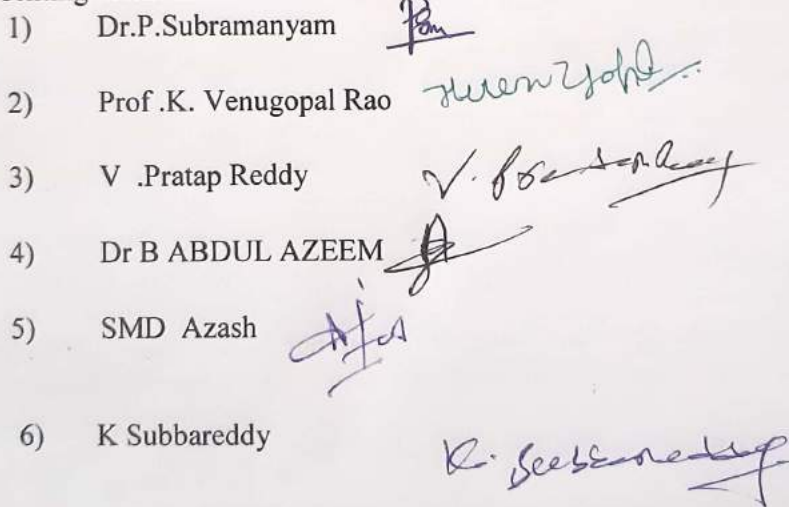 1) Dr.P.Subramanyam
2) Prof .K. Venugopal Rao
3) V .Pratap Reddy V.
4) Dr B ABDUL AZEEM
5) SMD Azash
6) K Subbareddy K. Subbareddy